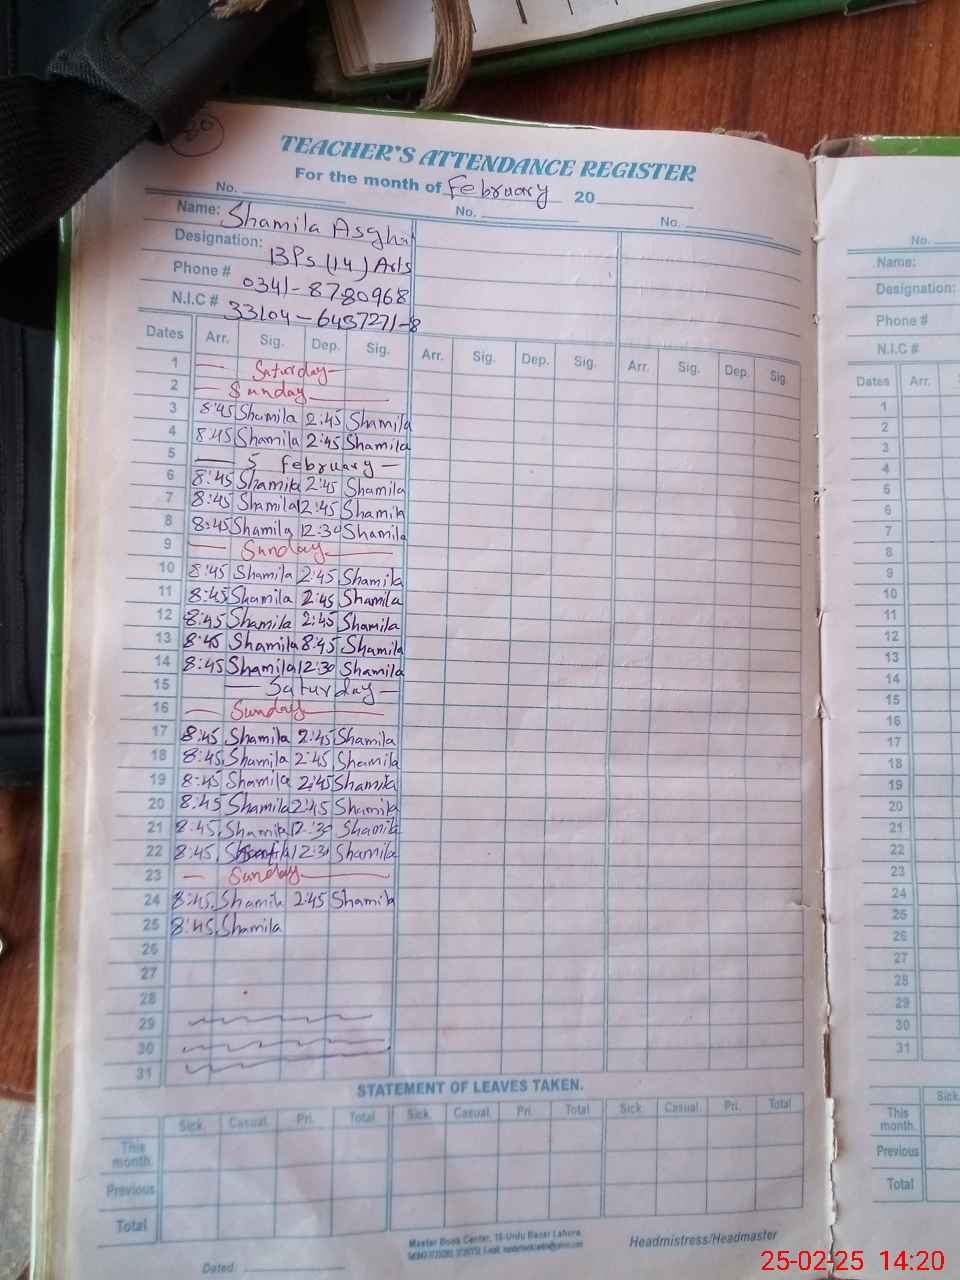 20
TEACHER'S ATTENDANCE REGISTER
For the month of February 20
No. No. No.
Name: Shamila Asghar
Designation: BPS (14) Arts
Phone # 0341-8780968
N.I.C # 33104-6437271-8
Dates Arr. Sig. Dep. Sig. Arr. Sig. Dep. Sig. Arr. Sig. Dep. Sig.
1 Saturday
2 Sunday
3 8:45 Shamila 2:45 Shamila
4 8:45 Shamila 2:45 Shamila
5 5 February
6 8:45 Shamila 2:45 Shamila
7 8:45 Shamila 12:45 Shamila
8 8:45 Shamila 12:30 Shamila
9 Sunday
10 8:45 Shamila 2:45 Shamila
11 8:45 Shamila 2:45 Shamila
12 8:45 Shamila 2:45 Shamila
13 8:45 Shamila 8:45 Shamila
14 8:45 Shamila 12:30 Shamila
15 Saturday
16 Sunday
17 8:45 Shamila 2:45 Shamila
18 8:45 Shamila 2:45 Shamila
19 8:45 Shamila 2:45 Shamila
20 8:45 Shamila 2:45 Shamila
21 8:45 Shamila 12:30 Shamila
22 8:45 12:30 Shamila
23 Sunday
24 8:45 Shamila 2:45 Shamila
25 8:45 Shamila
26
27
28
29
30
31
STATEMENT OF LEAVES TAKEN.
Sick. Casual. Pri. Total Sick. Casual. Pri. Total Sick. Casual. Pri. Total
This month.
Previous
Total
Master Book Center, 18-Urdu Bazar Lahore
Headmistress/Headmaster
Dated
No.
Name:
Designation:
Phone #
N.I.C #
Dates Arr.
1
2
3
4
5
6
7
8
9
10
11
12
13
14
15
16
17
18
19
20
21
22
23
24
25
26
27
28
29
30
31
Sick.
This month.
Previous
Total
25-02-25 14:20